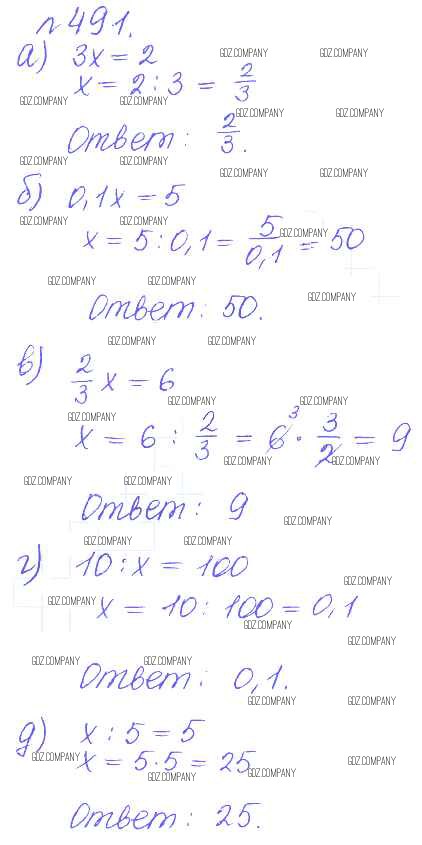 №491.
а) 3x = 2
GDZ.COMPANY GDZ.COMPANY
x = 2 : 3 = 2/3
GDZ.COMPANY GDZ.COMPANY
GDZ.COMPANY GDZ.COMPANY
Ответ: 2/3.
GDZ.COMPANY GDZ.COMPANY
GDZ.COMPANY GDZ.COMPANY
б) 0,1x = 5
GDZ.COMPANY GDZ.COMPANY
x = 5 : 0,1 = 5/0,1 = 50
GDZ.COMPANY
GDZ.COMPANY GDZ.COMPANY
GDZ.COMPANY
Ответ: 50.
GDZ.COMPANY GDZ.COMPANY
в) 2/3 x = 6
GDZ.COMPANY GDZ.COMPANY
GDZ.COMPANY
x = 6 : 2/3 = 6 3 · 3/2 = 9
GDZ.COMPANY GDZ.COMPANY
GDZ.COMPANY GDZ.COMPANY
Ответ: 9
GDZ.COMPANY
GDZ.COMPANY GDZ.COMPANY
г) 10 : x = 100
GDZ.COMPANY
GDZ.COMPANY
x = 10 : 100 = 0,1
GDZ.COMPANY
GDZ.COMPANY
GDZ.COMPANY GDZ.COMPANY
Ответ: 0,1.
GDZ.COMPANY GDZ.COMPANY
д) x : 5 = 5
GDZ.COMPANY GDZ.COMPANY
x = 5·5 = 25
GDZ.COMPANY GDZ.COMPANY
Ответ: 25.